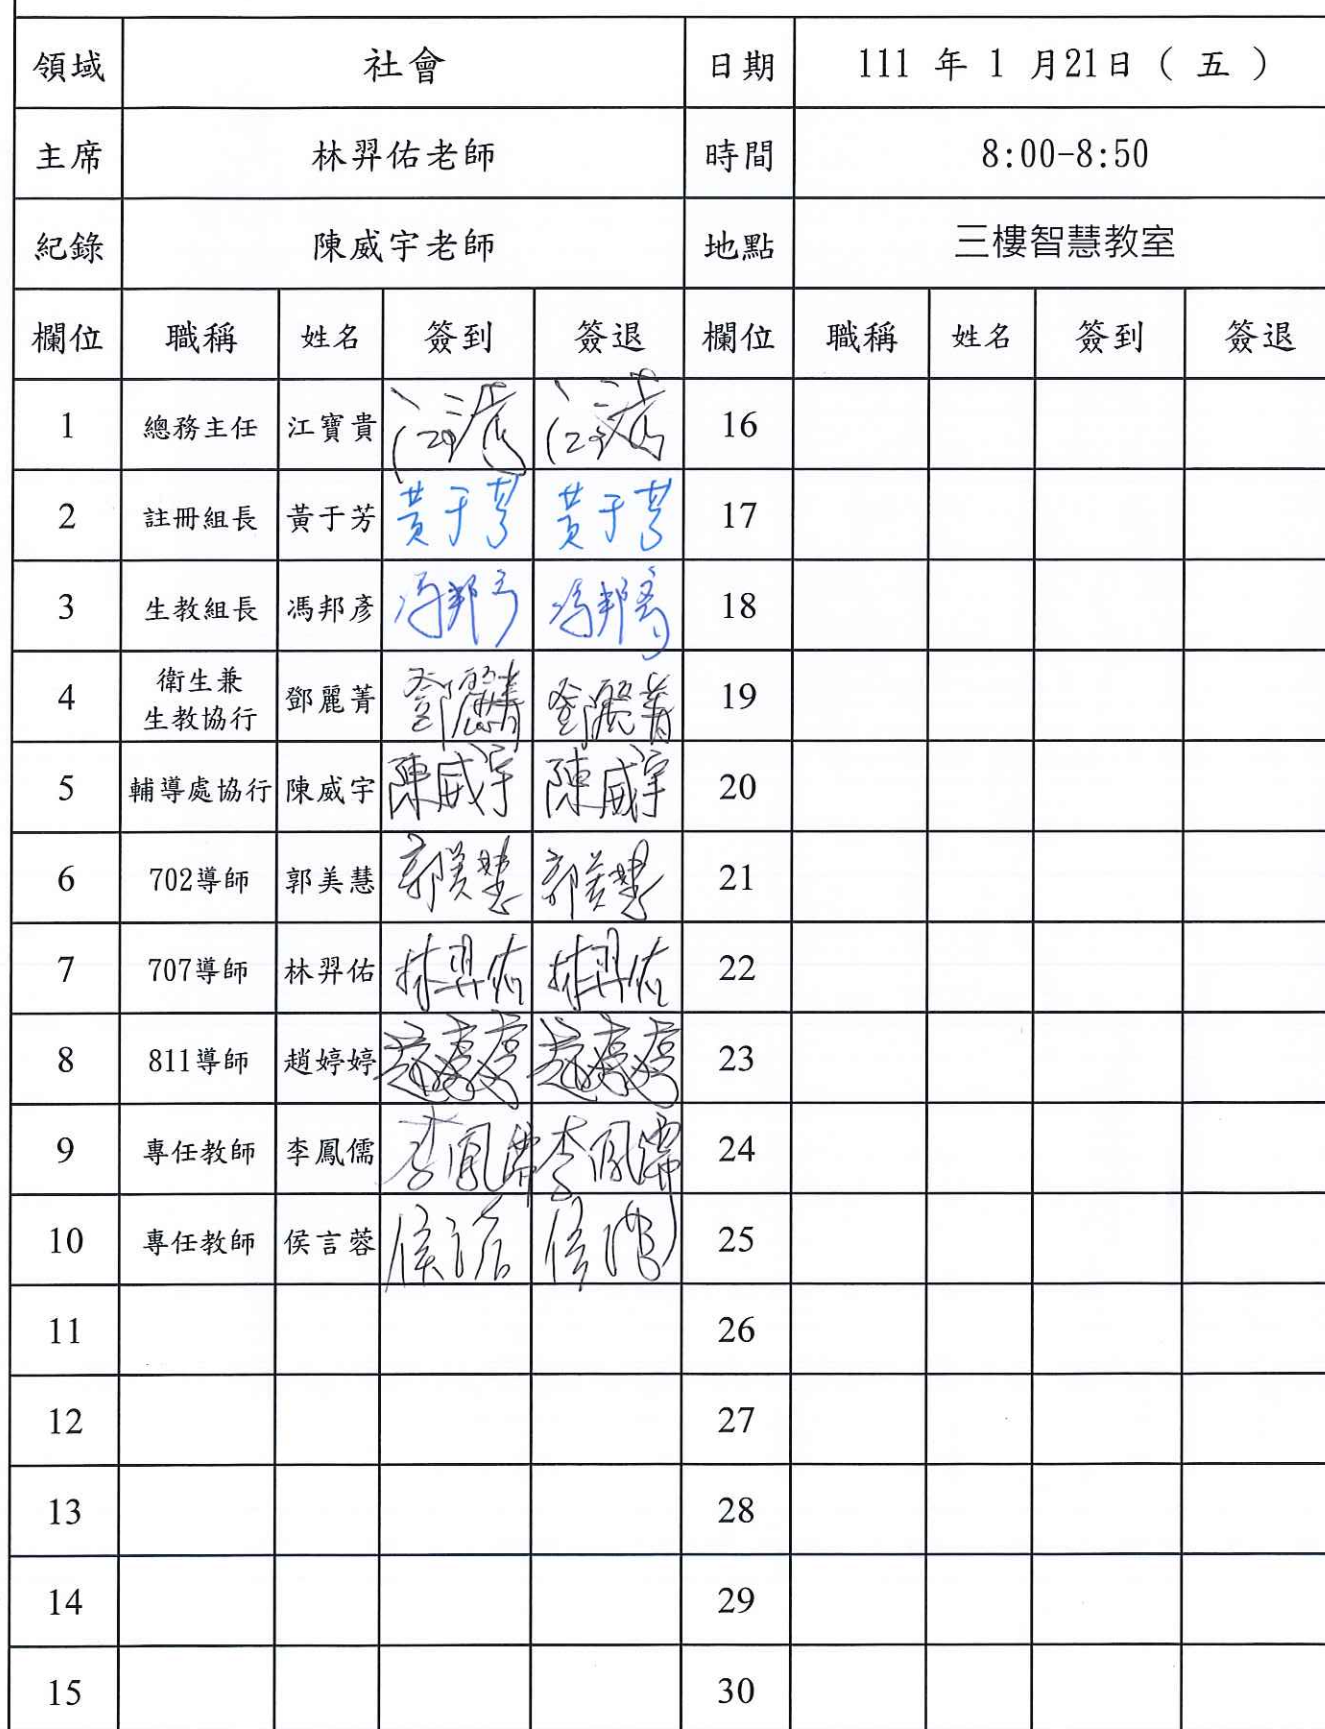 領域 社會 日期 111 年 1 月21日 ( 五 )
主席 林羿佑老師 時間 8:00-8:50
紀錄 陳威宇老師 地點 三樓智慧教室
欄位 職稱 姓名 簽到 簽退 欄位 職稱 姓名 簽到 簽退
1 總務主任 江寶貴 16
2 註冊組長 黃于芳 黃于芳 黃于芳 17
3 生教組長 馮邦彥 馮邦彥 馮邦彥 18
衛生兼
4 生教協行 鄧麗菁 鄧麗菁 鄧麗菁 19
5 輔導處協行 陳威宇 陳威宇 陳威宇 20
6 702導師 郭美慧 郭美慧 郭美慧 21
7 707導師 林羿佑 林羿佑 林羿佑 22
8 811導師 趙婷婷 趙婷婷 趙婷婷 23
9 專任教師 李鳳儒 李鳳儒 李鳳儒 24
10 專任教師 侯言蓉 25
11 26
12 27
13 28
14 29
15 30